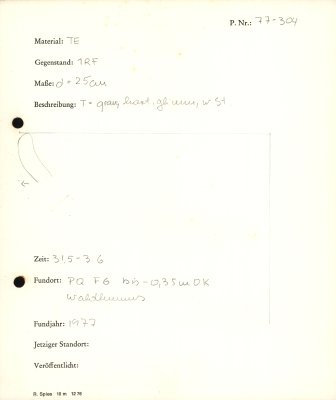 P. Nr.: 77-304
Material: TE
Gegenstand: 1RF
Maße: d = 25cm
Beschreibung: T = grau, hart, gl
Zeit: 31.5-3.6
Fundort: PQ FG bb -0,35 m OK
Waldhumus
Fundjahr: 1977
Jetziger Standort:
Veröffentlicht:
R. Spies 10 m 12 76